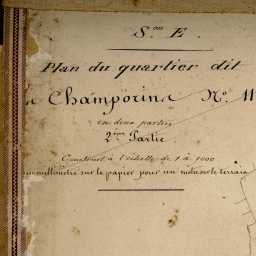 S.on E.
Plan du quartier dit
Champorin No. 11
en deux parties
2ème Partie.
Construit à l'échelle de 1 à 1000
millimètre sur le papier pour un mètre sur le terrain